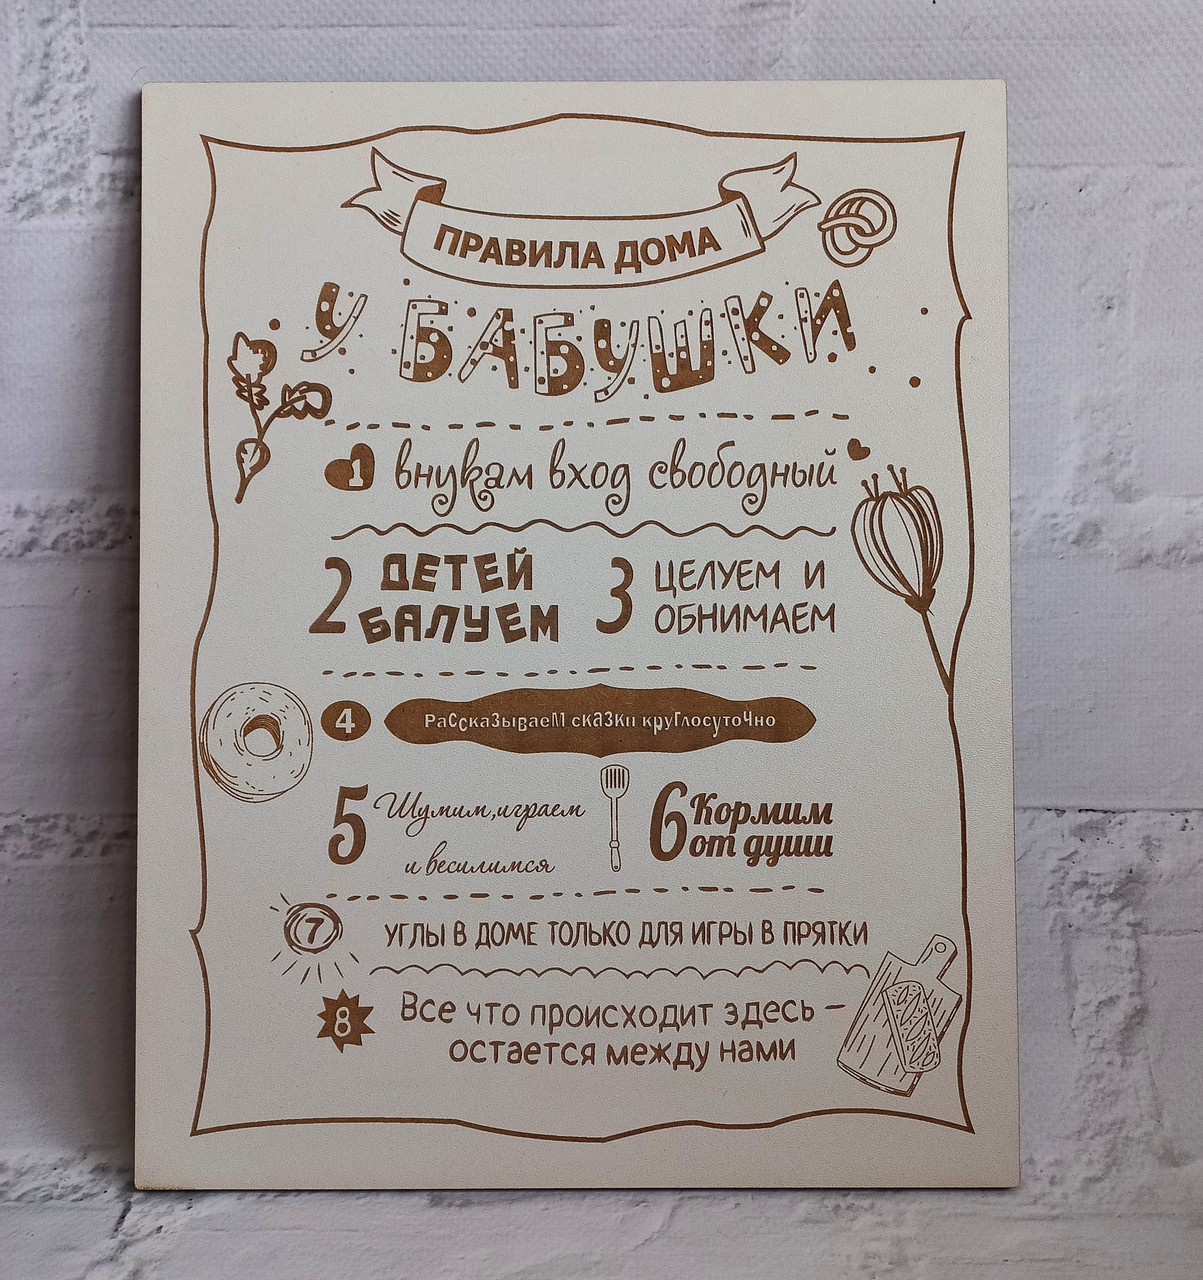 ПРАВИЛА ДОМА
У БАБУШКИ
1 внукам вход свободный
2 ДЕТЕЙ
БАЛУЕМ
3 ЦЕЛУЕМ И
ОБНИМАЕМ
4 Рассказываем сказки круглосуточно
5 Шумим, играем
и весилимся
6 Кормим
от души
7 УГЛЫ В ДОМЕ ТОЛЬКО ДЛЯ ИГРЫ В ПРЯТКИ
8 Все что происходит здесь –
остается между нами